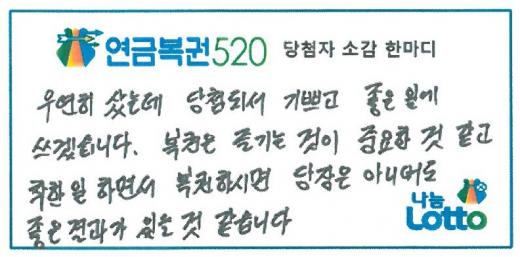 연금복권520 당첨자 소감 한마디
우연히 샀는데 당첨되서 기쁘고 좋은 일에
쓰겠습니다. 복권은 즐기는 것이 중요한 것 같고
착한일 하면서 복권하시면 당장은 아니여도
좋은결과가 있을 것 같습니다
나눔
Lotto